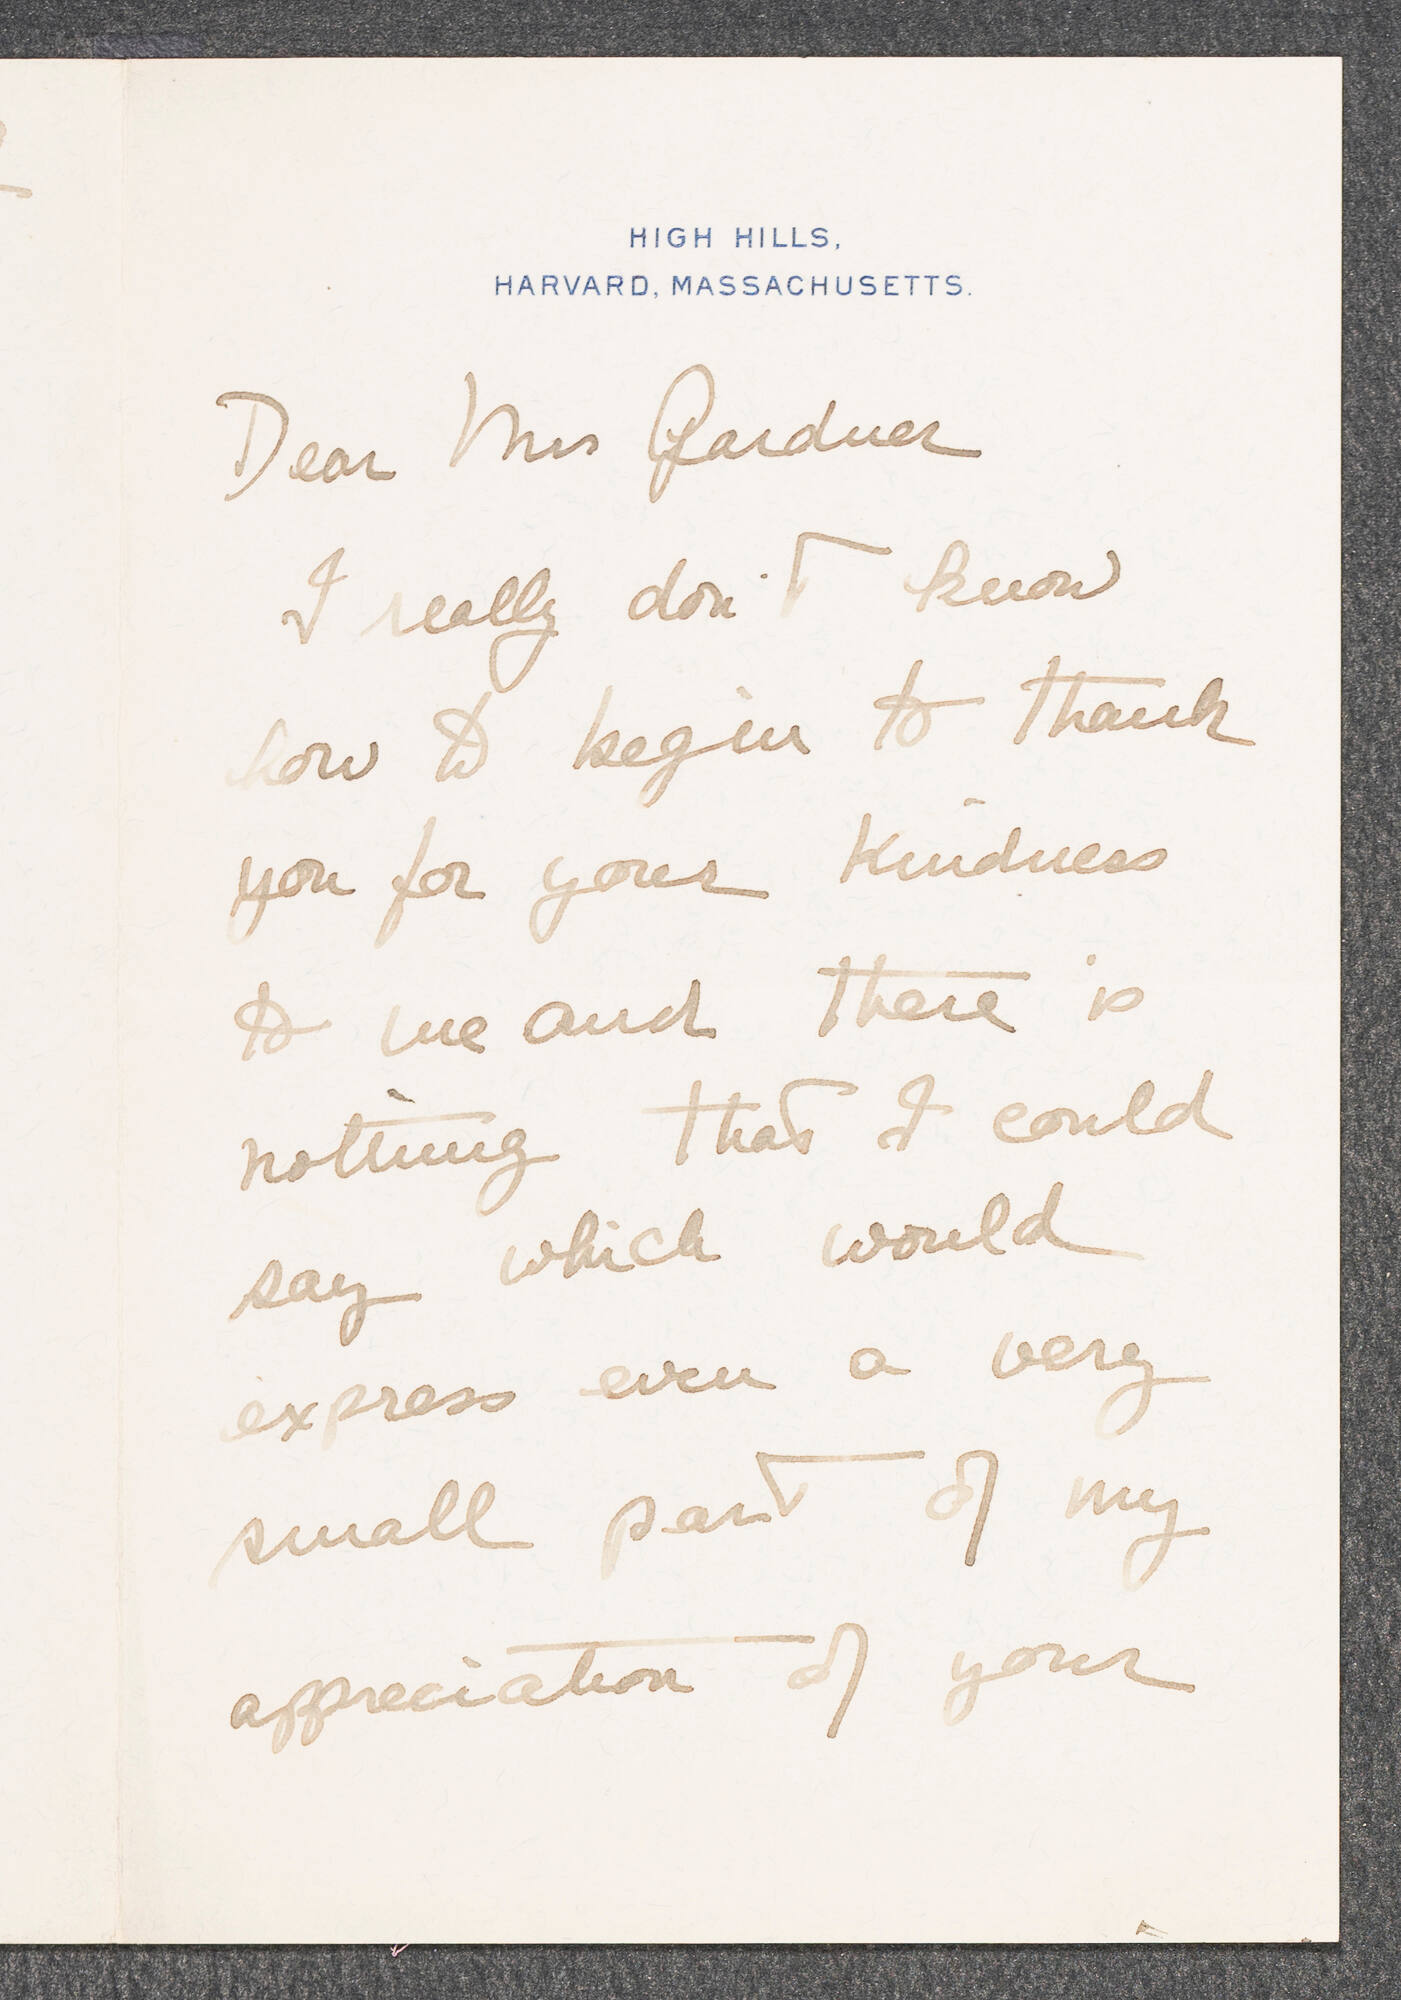 HIGH HILLS,
HARVARD, MASSACHUSETTS.
Dear Mrs Gardner
I really don't know
how to begin to thank
you for your kindness
to me and there is
nothing that I could
say which would
express even a very
small part of my
appreciation of your